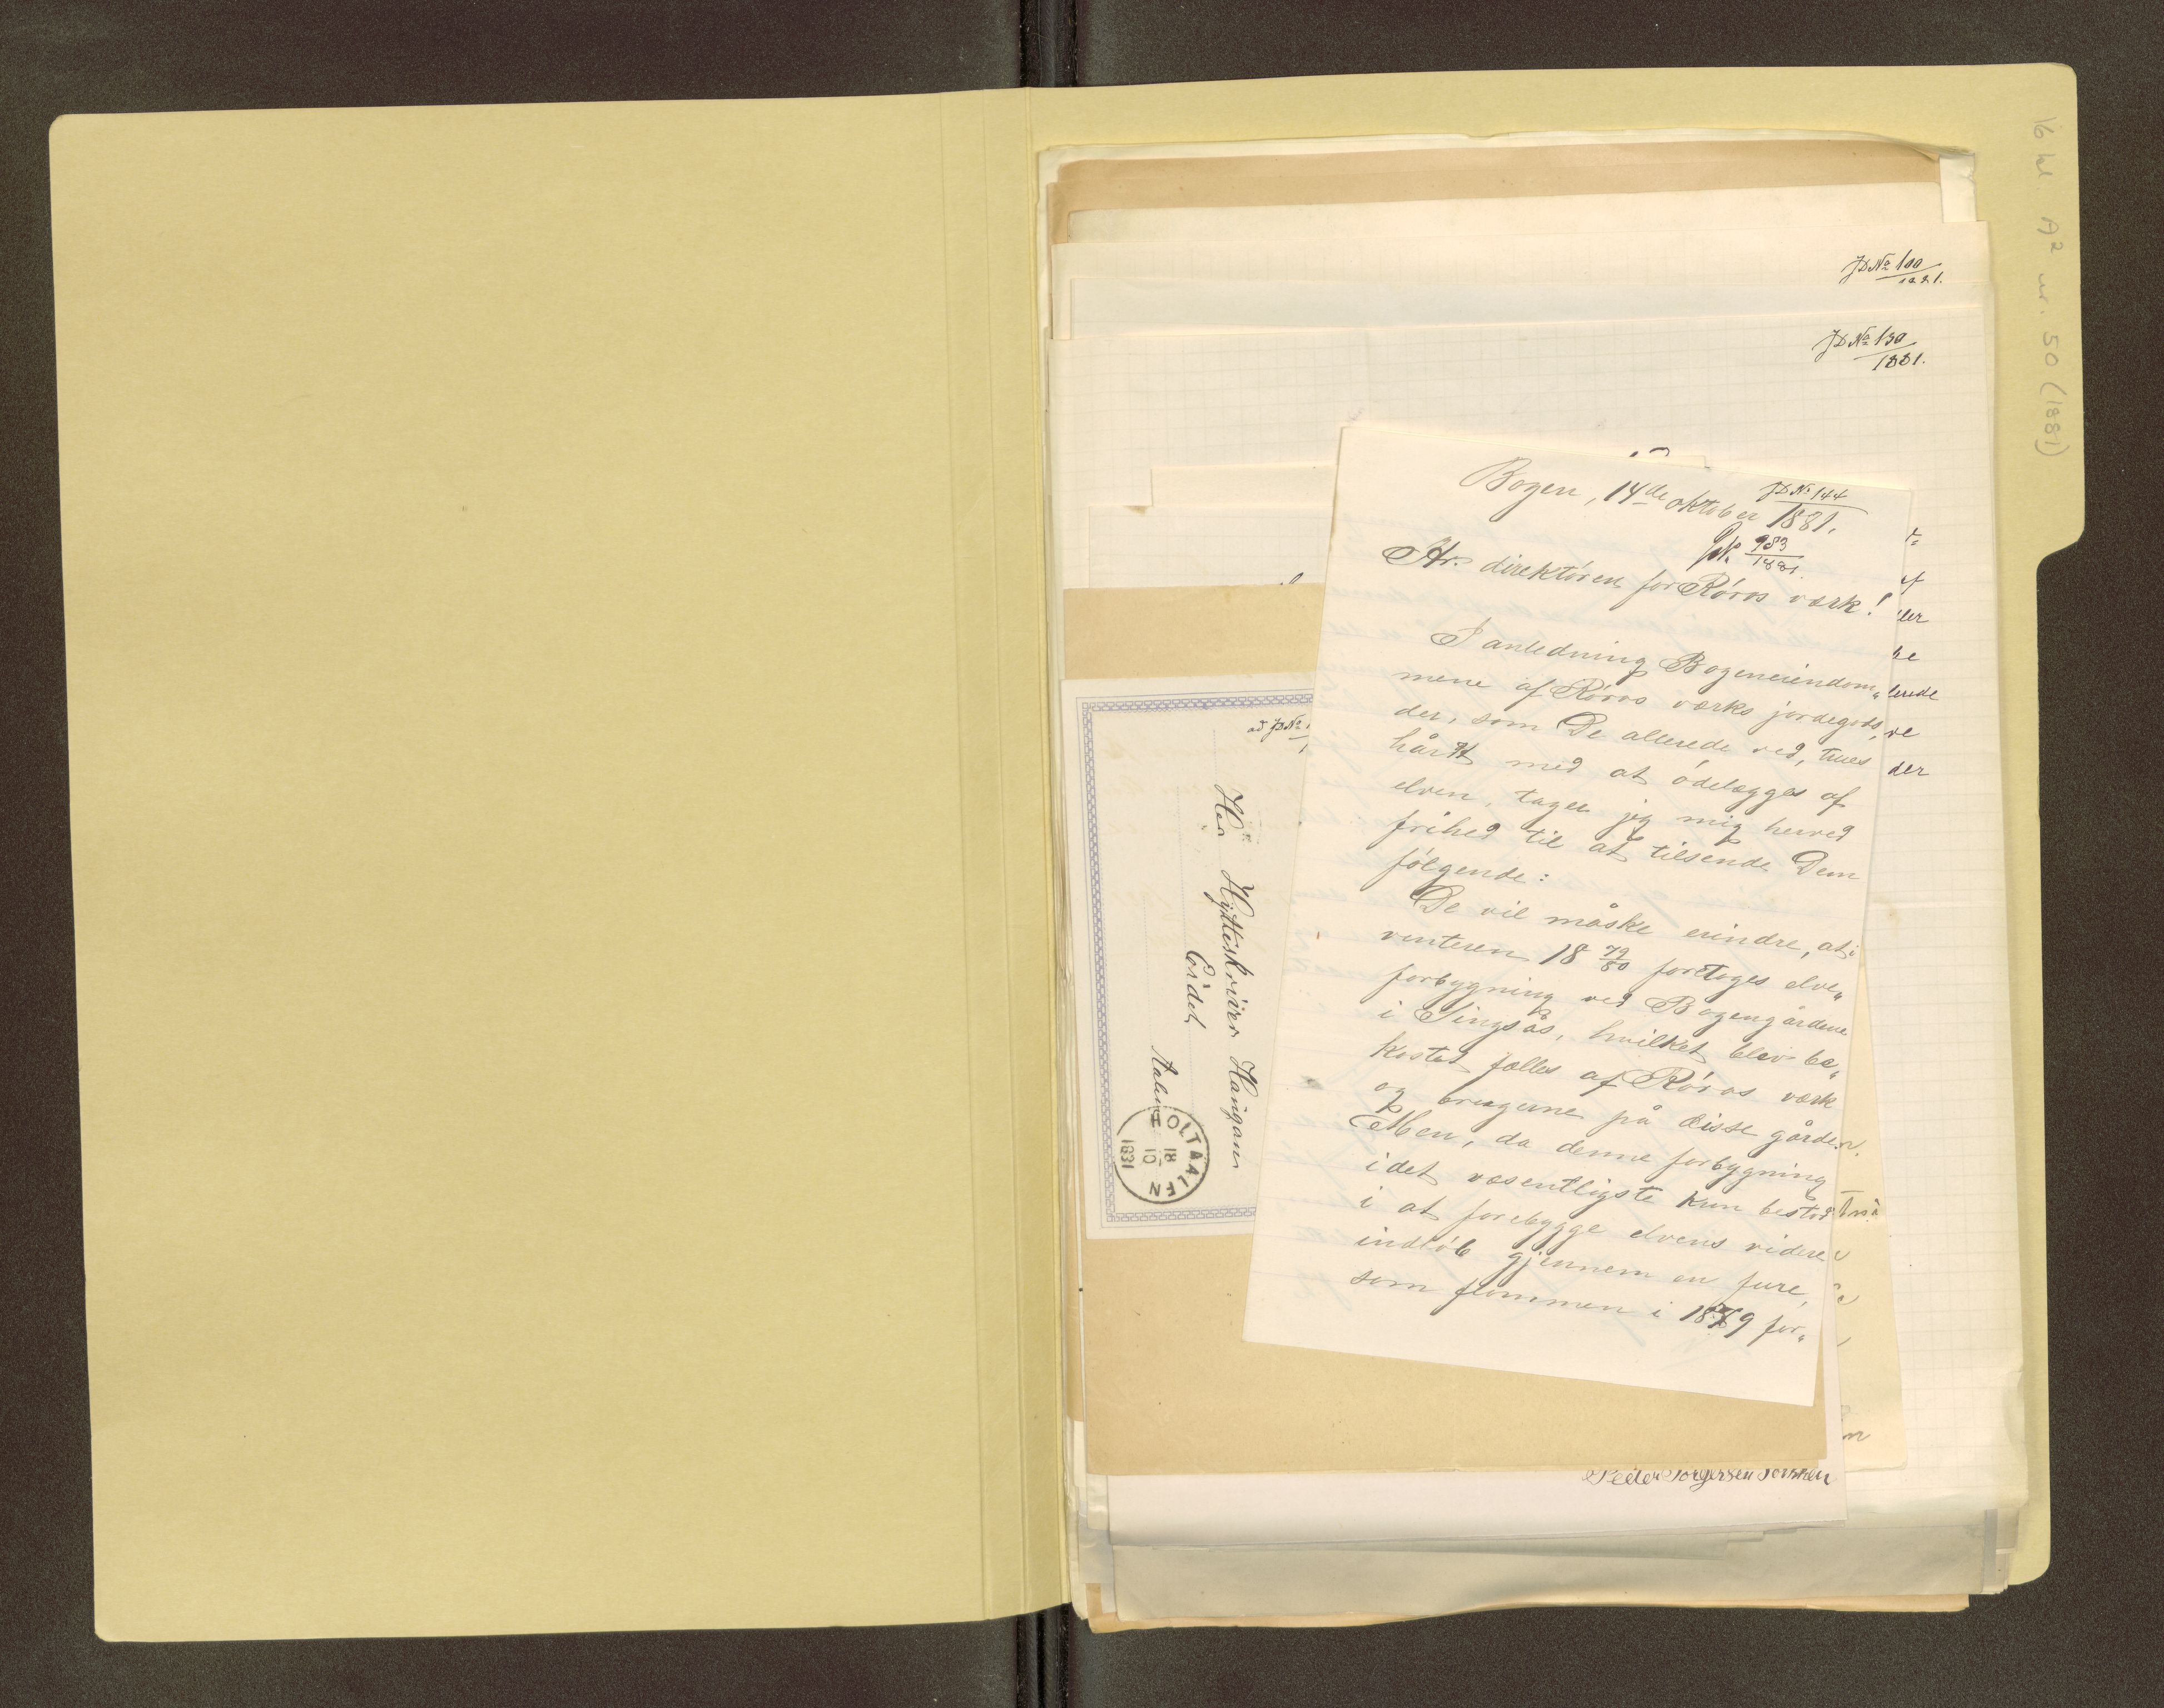 16 kl. A² nr. 50 (1881)
JD No 100
1881.
JD No 130
1881.
JD No 144
Bogen, 14de oktober 1881.
983
1881.
Hr. direktören for Röros værk!
I anledning Bogeneiendom„
mene af Röros værks jordegods,
der, som De allerede ved, trues
hårdt med at ödelægges af
elven, tager jeg mig herved
frihed til at tilsende Dem
fölgende:
De vil måske erindre, at i
vinteren 18 79/80 foretoges elve„
forbygning ved Bogengårdene
i Singsås, hvilket blev be„
kostet fælles af Röros værk
og brugerne på disse gårde.
Men, da denne forbygning
idet væsentligste kun bestod
i at forebygge elvens videre
indlöb gjennem en fure,
som flommen i 1879 for„
af
ller
lerede
ve
der
ad JD No
Herr Hytteskriver Hangan
Eidet
Aalen
HOLTAALEN
18
10
1881
Peder Torgersen